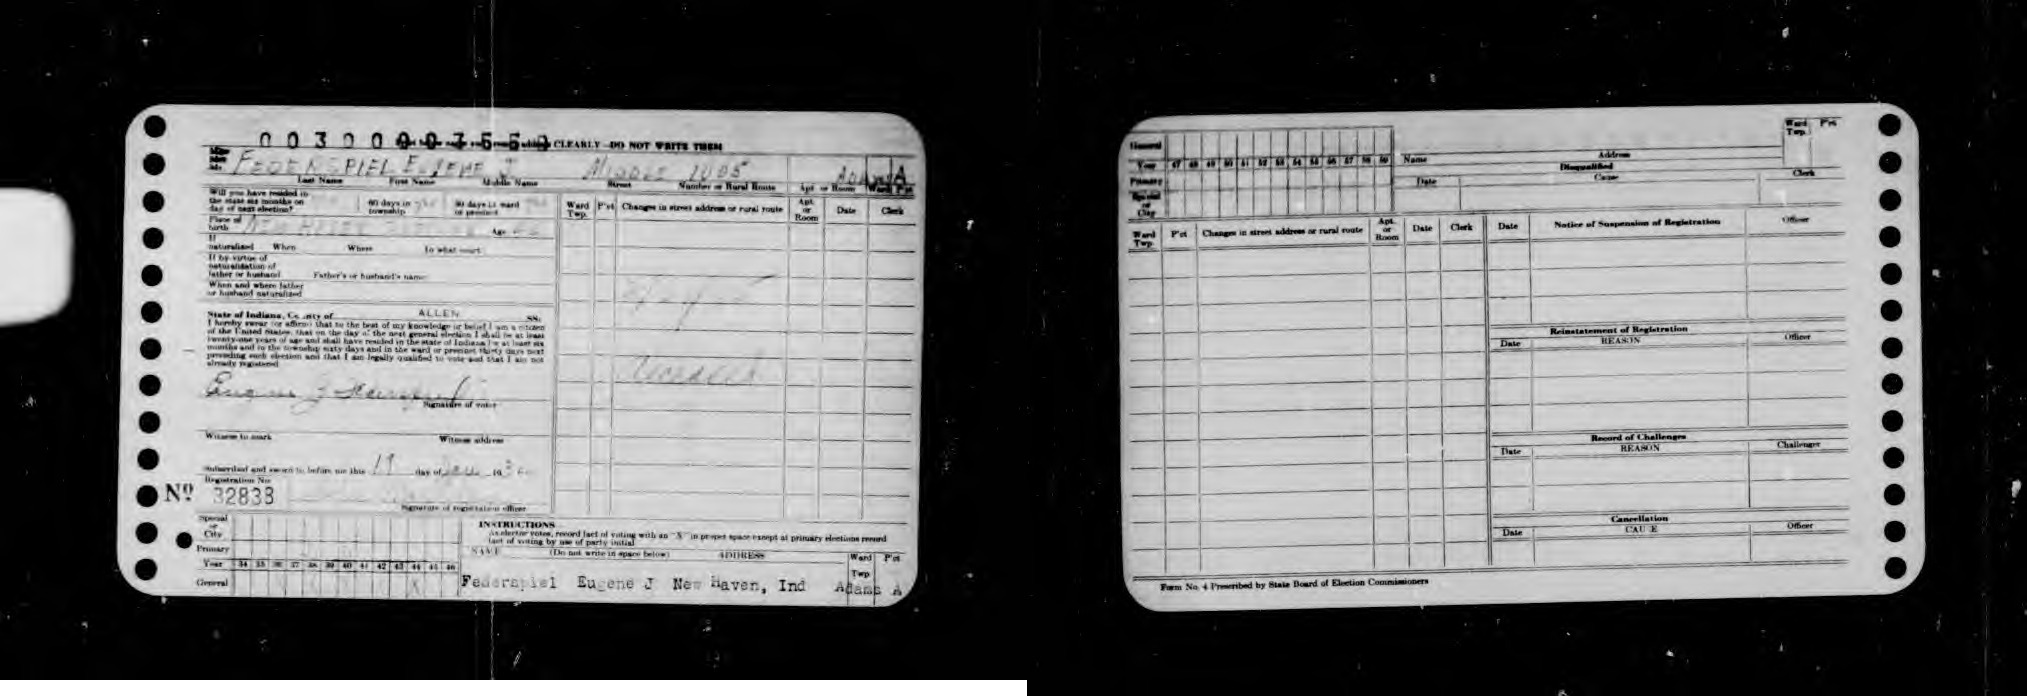 CLEARLY—DO NOT WRITE THEM
FEDERSPIEL EUGENE J
Last Name First Name Middle Name Street Number or Rural Route Apt or Room Ward P'ct
Will you have resided in
the state six months on
day of next election? 60 days in township 30 days in ward or precinct
Place of birth Age
If naturalized When Where In what court
If by virtue of
naturalization of
father or husband Father's or husband's name
When and where father
or husband naturalized
State of Indiana, County of ALLEN SS:
I hereby swear (or affirm) that to the best of my knowledge or belief I am a citizen
of the United States, that on the day of the next general election I shall be at least
twenty-one years of age and shall have resided in the state of Indiana for at least six
months and in the township sixty days and in the ward or precinct thirty days next
preceding such election and that I am legally qualified to vote and that I am not
already registered
Eugene J Federspiel
Signature of voter
Witness to mark Witness address
Subscribed and sworn to before me this 19 day of
Registration No.
Nº 32833
Signature of registration officer
Ward Twp. P'ct Changes in street address or rural route Apt. or Room Date Clerk
Special or City
Primary
Year 34 35 36 37 38 39 40 41 42 43 44 45 46
General
INSTRUCTIONS
As elector votes, record fact of voting with an "X" in proper space except at primary elections record
fact of voting by use of party initial
NAME (Do not write in space below) ADDRESS Ward Twp P'ct
Federspiel Eugene J New Haven, Ind Adams A
General
Year 47 48 49 50 51 52 53 54 55 56 57 58 59
Primary
Special or City
Name Address Ward Twp. P'ct
Disqualified
Date Cause Clerk
Ward Twp. P'ct Changes in street address or rural route Apt. or Room Date Clerk
Date Notice of Suspension of Registration Officer
Reinstatement of Registration
Date REASON Officer
Record of Challenges
Date REASON Challenger
Cancellation
Date CAUSE Officer
Form No. 4 Prescribed by State Board of Election Commissioners